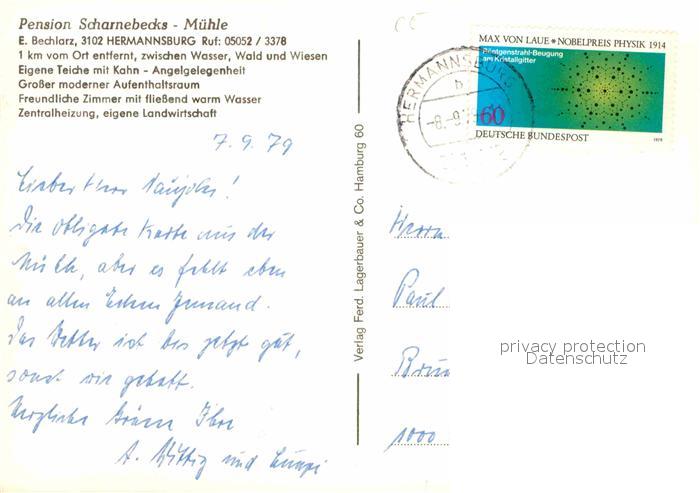 Pension Scharnebecks - Mühle
E. Bechlarz, 3102 HERMANNSBURG Ruf: 05052 / 3378
1 km vom Ort entfernt, zwischen Wasser, Wald und Wiesen
Eigene Teiche mit Kahn - Angelgelegenheit
Großer moderner Aufenthaltsraum
Freundliche Zimmer mit fließend warm Wasser
Zentralheizung, eigene Landwirtschaft
7.9.79
Lieber Herr
Die obligate Karte aus der
Mühle, aber es fehlt eben
an allen Ecken jemand.
Das Wetter ist bis jetzt gut,
sonst wie gehabt.
Herzliche Grüsse Ihre
A. Wittig und
Verlag Ferd. Lagerbauer & Co. Hamburg 60
MAX VON LAUE * NOBELPREIS PHYSIK 1914
Röntgenstrahl-Beugung
am Kristallgitter
60
DEUTSCHE BUNDESPOST
1979
HERMANNSBURG
b
-8.-9.
Herrn
Paul
1000
privacy protection
Datenschutz